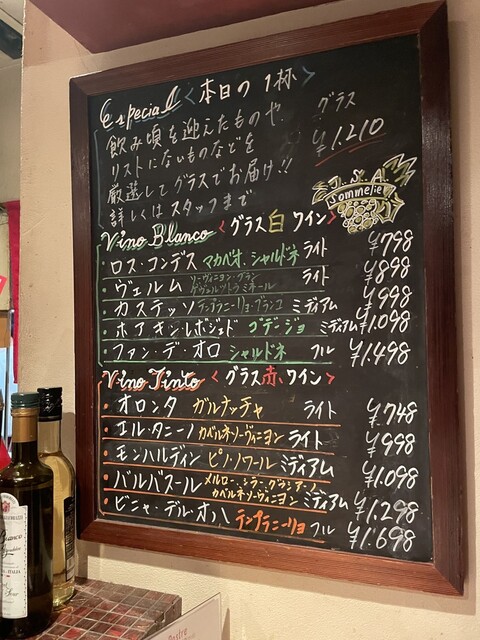 Especial <本日の1杯>
飲み頃を迎えたものや、
リストにないものなどを
厳選してグラスでお届け!!
詳しくはスタッフまで
グラス
¥1.210
J.S.A
Sommelier
Vino Blanco <グラス白ワイン>
・ロス・コンデス マカベオ、シャルドネ ライト ¥798
・ヴェルム ソーヴィニヨン・ブラン ゲヴュルツトラミネール ライト ¥898
・カステッソ テンプラニーリョ・ブランコ ミディアム ¥998
・ホアキン・レボジェド ゴデージョ ミディアム ¥1.098
・ファン・デ・オロ シャルドネ フル ¥1.498
Vino Tinto <グラス赤ワイン>
・オロンタ ガルナッチャ ライト ¥748
・エル・タニーノ カベルネ・ソーヴィニヨン ライト ¥998
・モンハルディン ピノ・ノワール ミディアム ¥1.098
・バルバスール メルロー・シラー・グラシアーノ カベルネ・ソーヴィニヨン ミディアム ¥1.298
・ビニャ・デル・オハ テンプラニーリョ フル ¥1.698